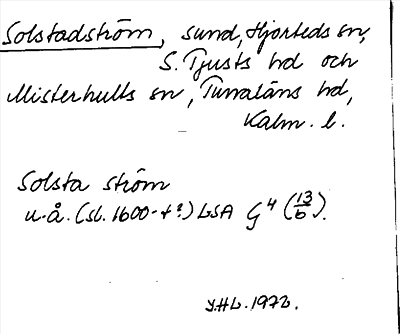 Solstadström, sund, Hjorteds sn,
S. Tjusts hd och
Misterhults sn, Tunaläns hd,
Kalm. l.
Solsta ström
u.å. (sl. 1600-t?) LSA G 4 (13/b).
J.HL. 1972.